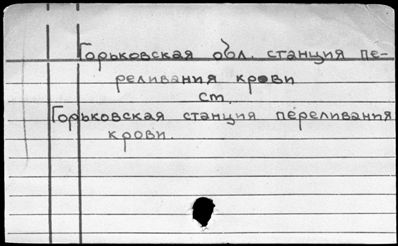 Горьковская обл. станция пе-
реливания крови
ст.
Горьковская станция переливания
крови.